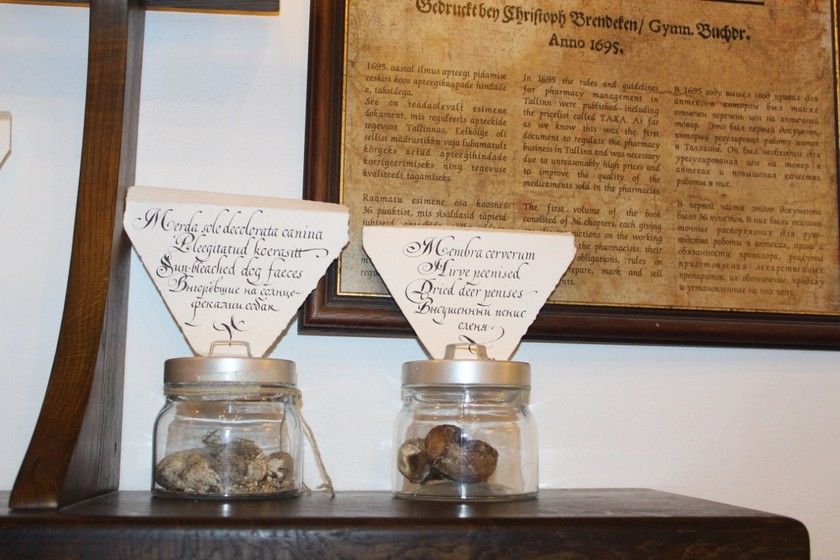 Gedruckt bey Christoph Brendeken/ Gymn. Buchdr.
Anno 1695.
1695. aastal ilmus apteegi pidamise
eeskiri koos apteegikaupade hindade
e. taksidega.
See on teadaolevalt esimene
dokument, mis reguleeris apteekide
tegevust Tallinnas. Eelkõige oli
sellist määrustikku vaja lubamatult
kõrgeks aetud apteegihindade
korrigeerimiseks ning tegevuse
kvaliteedi tagamiseks.
Raamatu esimene osa koosnes
36 punktist, mis sisaldasid täpseid
In 1695 the rules and guidelines
for pharmacy management in
Tallinn were published including
the pricelist called TAXA. As far
as we know this was the first
document to regulate the pharmacy
business in Tallinn and was necessary
due to unreasonably high prices and
to improve the quality of the
medicaments sold in the pharmacies.
The first volume of the book
consisted of 36 chapters, each giving
on the working
the pharmacists, their
obligations, rules on
prepare, mark and sell
В 1695 году вышел свод правил для
аптек, в котором был также
отмечен перечень цен на аптечный
товар. Это был первый документ,
который регулировал работу аптек
в Таллинне. Он был необходим для
урегулирования цен на товар в
аптеках и повышения качества
работы в них.
В первой части этого документа
было 36 пунктов. В них были указаны
точные распоряжения для
работы в аптеках, права
обязанности провизора, рецепты
приготовления лекарственных
препаратов, их обозначение, продажу
и установленные на них цены.
Merda sole decolorata canina
Pleegitatud koerasitt
Sun-bleached dog faeces
Выгоревшие на солнце
фекалии собак
Membra cervorum
Hirve peenised
Dried deer penises
Высушенный пенис
оленя